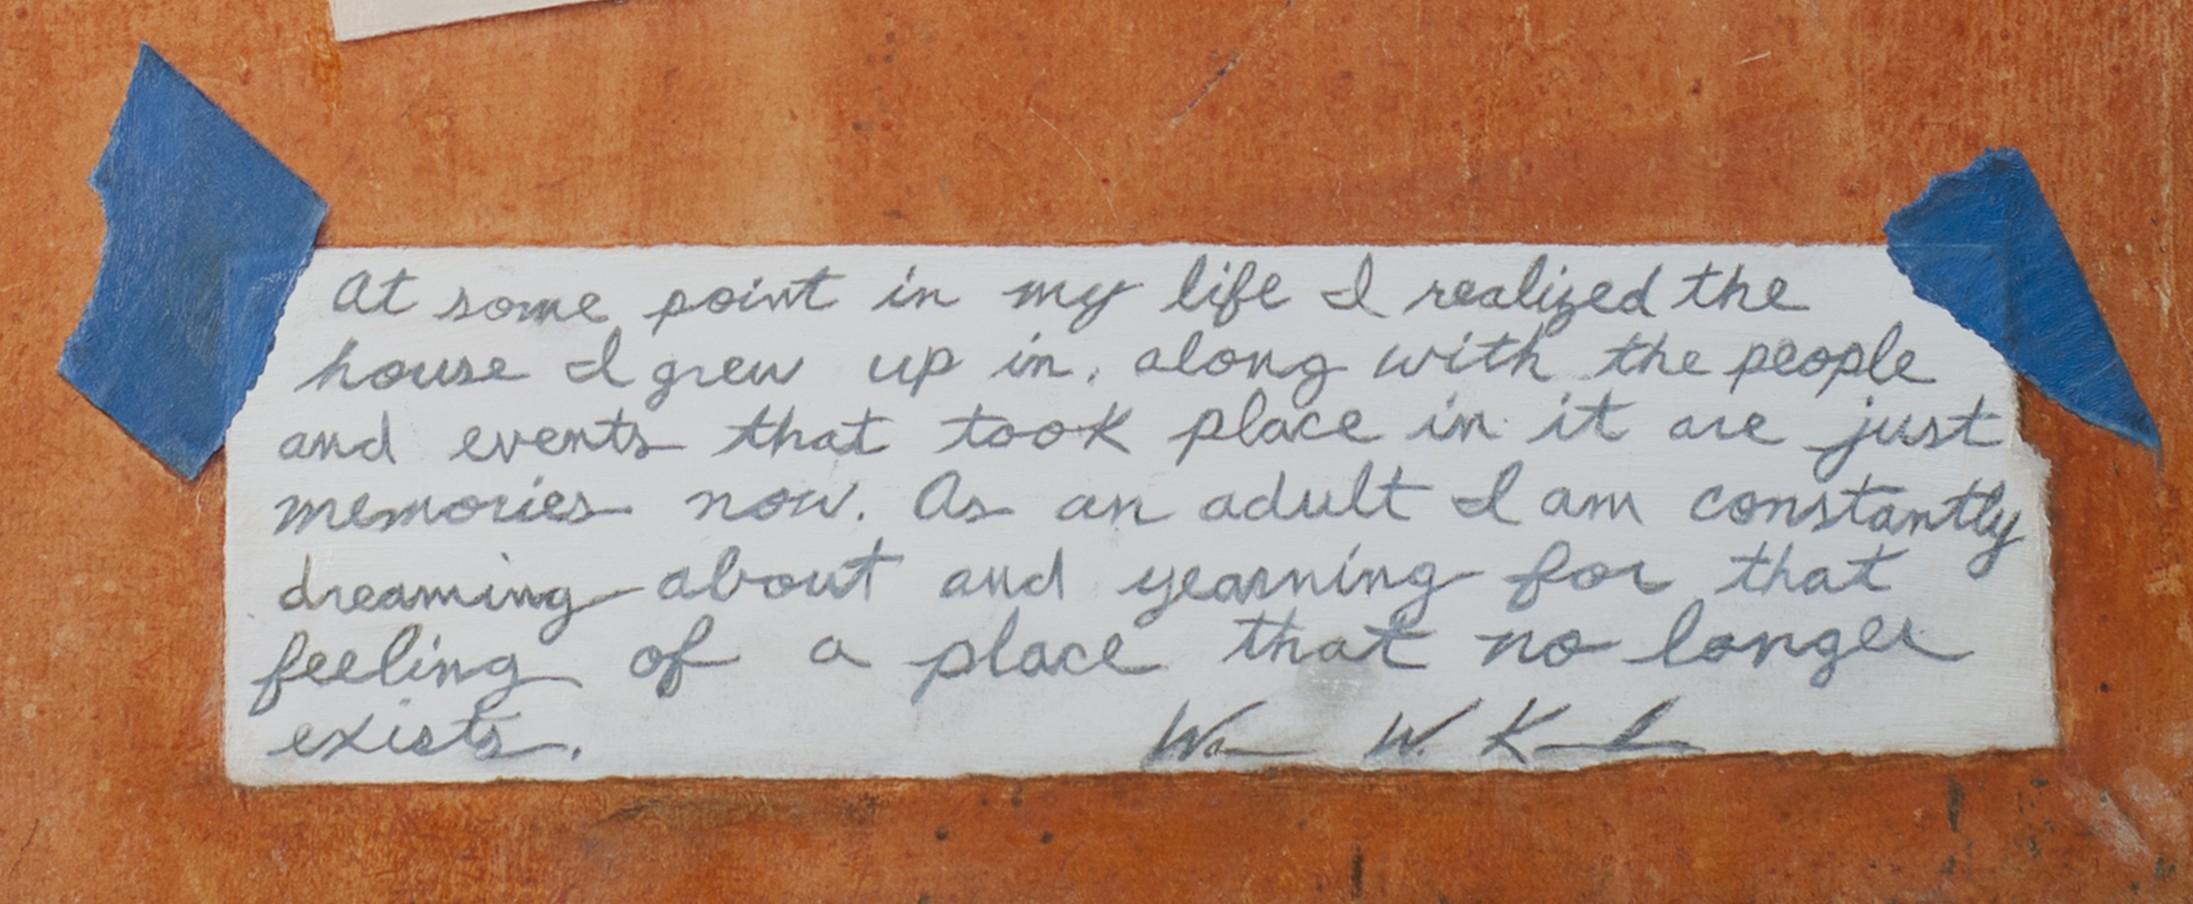 At some point in my life I realized the
house I grew up in, along with the people
and events that took place in it are just
memories now. As an adult I am constantly
dreaming about and yearning for that
feeling of a place that no longer
exists.
W.